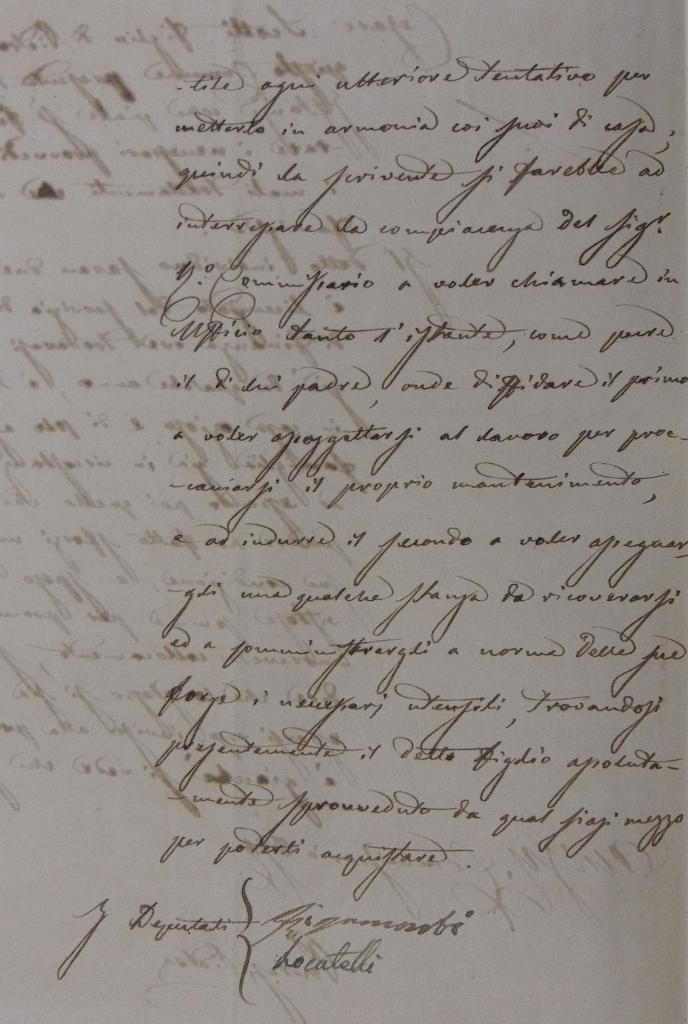 -tile ogni ulteriore tentativo per
metterlo in armonia coi suoi di casa,
quindi la scrivente si farebbe ad
interessare la compiacenza del Sigr.
Commissario a voler chiamare in
Ufficio tanto l'istante, come pure
il di lui padre, onde diffidare il primo
a voler assoggettarsi al lavoro per proc-
-cacciarsi il proprio mantenimento,
e ad indurre il secondo a voler assegnar-
gli una qualche stanza da ricoverarsi
ed a somministrargli a norma delle sue
forze i necessarj utensili, trovandosi
presentemente il detto figlio assoluta-
-mente sprovveduto da qual siasi mezzo
per poterli acquistare.
I Deputati
Locatelli